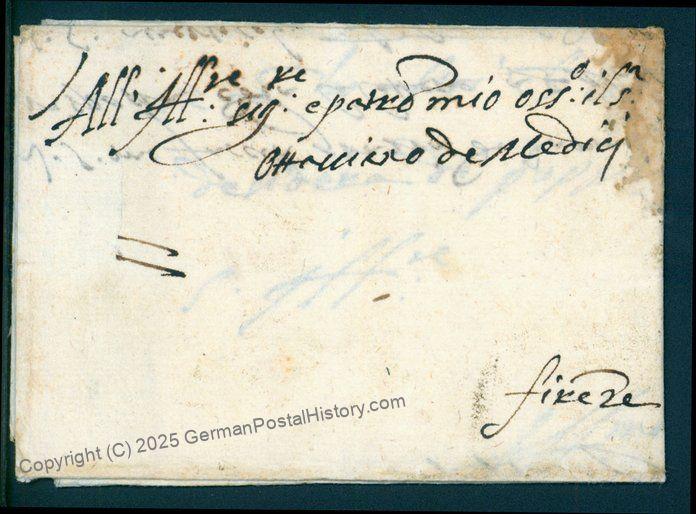 All' Ill:re sig:re e patro mio oss:o il s:r
Ottaviano de Medicj
firēze
Copyright (C) 2025 GermanPostalHistory.com